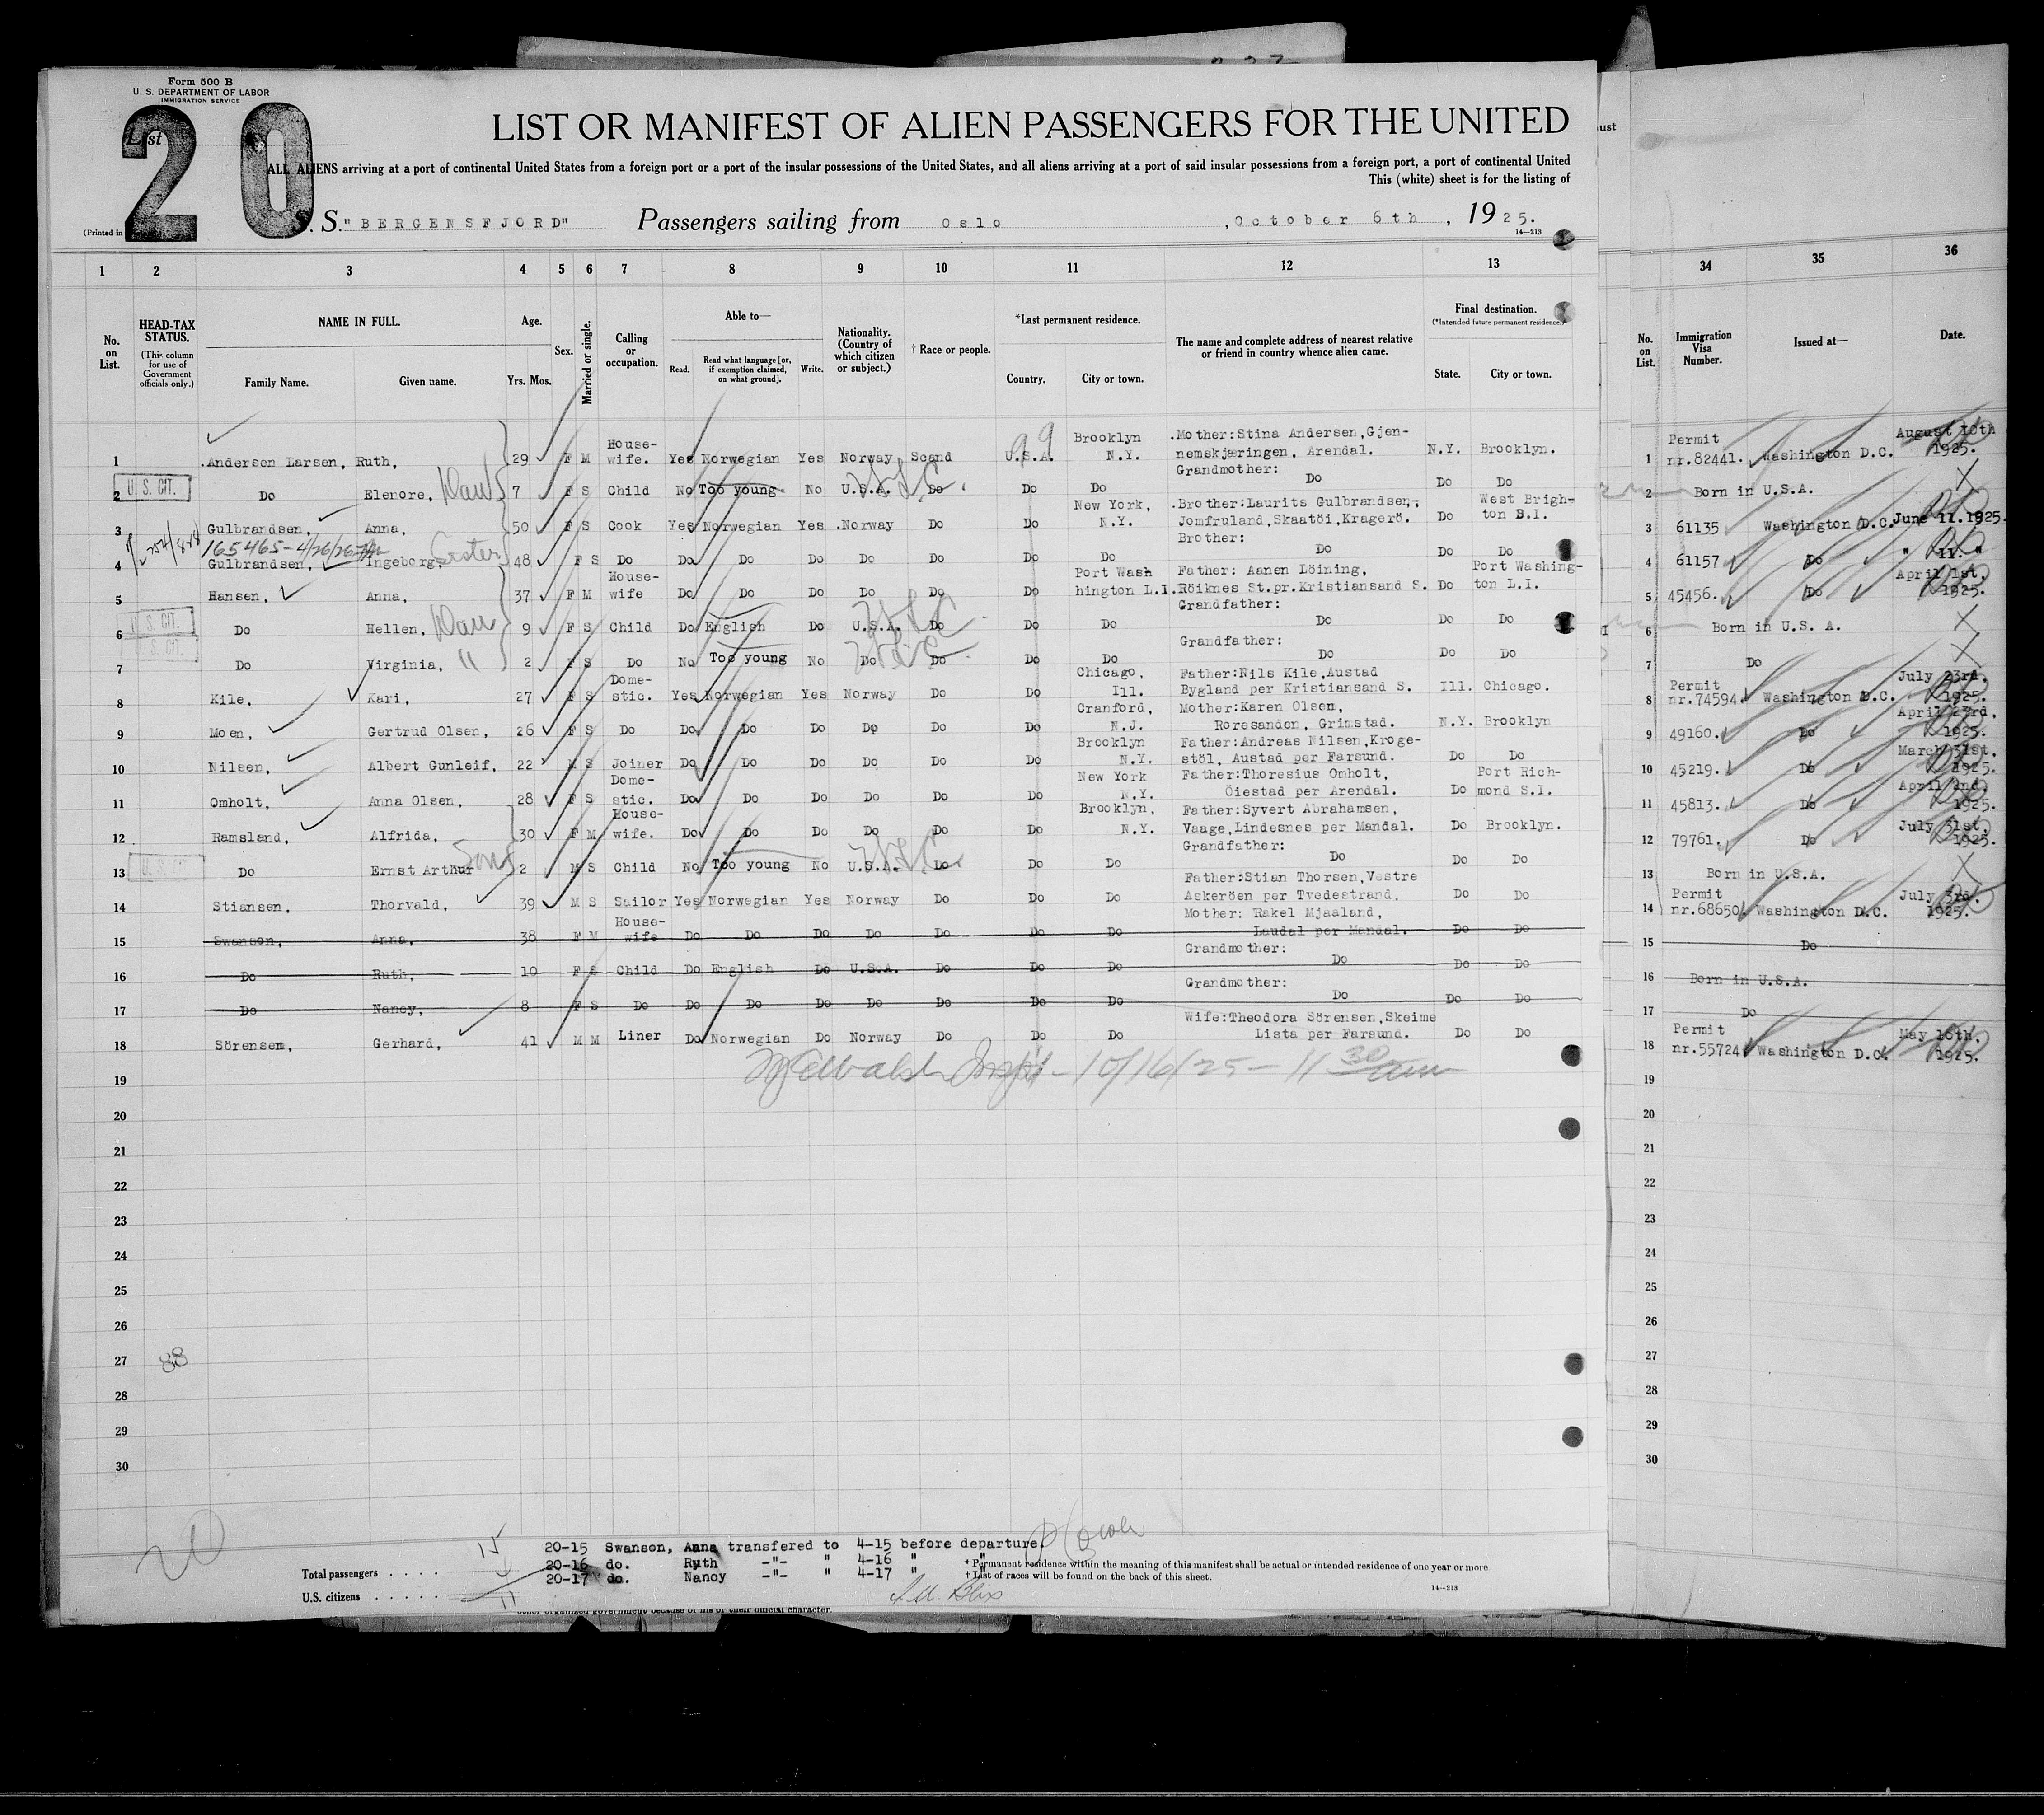 Form 500 B
U. S. DEPARTMENT OF LABOR
IMMIGRATION SERVICE
List
20
LIST OR MANIFEST OF ALIEN PASSENGERS FOR THE UNITED
ALL ALIENS arriving at a port of continental United States from a foreign port or a port of the insular possessions of the United States, and all aliens arriving at a port of said insular possessions from a foreign port, a port of continental United
This (white) sheet is for the listing of
(Printed in
S. S. "BERGENSFJORD" Passengers sailing from Oslo , October 6th , 1925.
14—213
1 2 3 4 5 6 7 8 9 10 11 12 13 34 35 36
No. on List.
HEAD-TAX STATUS.
(This column for use of Government officials only.)
NAME IN FULL.
Family Name. Given name.
Age.
Yrs. Mos.
Sex.
Married or single.
Calling or occupation.
Able to—
Read. Read what language [or, if exemption claimed, on what ground]. Write.
Nationality. (Country of which citizen or subject.)
† Race or people.
*Last permanent residence.
Country. City or town.
The name and complete address of nearest relative or friend in country whence alien came.
Final destination.
(*Intended future permanent residence.)
State. City or town.
No. on List.
Immigration Visa Number.
Issued at—
Date.
1 Andersen Larsen, Ruth, 29 F M House-wife. Yes Norwegian Yes Norway Scand U.S.A. Brooklyn N.Y. Mother:Stina Andersen,Gjen-nemskjæringen, Arendal. N.Y. Brooklyn. 1 Permit nr.82441. Washington D.C. August 10th 1925.
2 U. S. CIT. Do Elenore, Dau 7 F S Child No Too young No U.S.A. Do Do Do Grandmother: Do Do Do 2 Born in U.S.A.
3 Gulbrandsen, Anna, 50 F S Cook Yes Norwegian Yes Norway Do Do New York, N.Y. Brother:Laurits Gulbrandsen, Jomfruland,Skaatöi,Kragerö. Do West Brigh-ton B.I. 3 61135 Washington D.C. June 11.1925.
165465-4/26/26
4 Gulbrandsen, Ingeborg, Sister 48 F S Do Do Do Do Do Do Do Do Brother: Do Do Do 4 61157 Do " 11. "
5 Hansen, Anna, 37 F M House-wife Do Do Do Do Do Do Port Wash hington L.I. Father: Aanen Löining, Röiknes St.pr.Kristiansand S. Do Port Washing-ton L.I. 5 45456. Do April 1st, 1925.
6 U. S. CIT. Do Hellen, Dau 9 F S Child Do English Do U.S.A. Do Do Do Grandfather: Do Do Do 6 Born in U.S. A.
7 U. S. CIT. Do Virginia, " 2 F S Do No Too young No Do Do Do Do Grandfather: Do Do Do 7 Do
8 Kile, Kari, 27 F S Dome-stic. Yes Norwegian Yes Norway Do Do Chicago, Ill. Father:Nils Kile,Austad Bygland per Kristiansand S. Ill. Chicago. 8 Permit nr.74594. Washington D.C. July 23rd. 1925.
9 Moen, Gertrud Olsen, 26 F S Do Do Do Do Do Do Do Cranford, N.J. Mother:Karen Olsen, Roresanden, Grimstad. N.Y. Brooklyn 9 49160. Do April 23rd, 1925.
10 Nilsen, Albert Gunleif, 22 M S Joiner Do Do Do Do Do Do Brooklyn N.Y. Father:Andreas Nilsen,Kroge-stöl, Austad per Farsund. Do Do 10 45219. Do March 31st. 1925.
11 Omholt, Anna Olsen, 28 F S Dome-stic. Do Do Do Do Do Do New York N.Y. Father:Thoresius Omholt, Öiestad per Arendal. Do Port Rich-mond S.I. 11 45813. Do April 2nd, 1925.
12 Ramsland, Alfrida, 30 F M House-wife. Do Do Do Do Do Do Brooklyn, N.Y. Father:Syvert Abrahamsen, Vaage,Lindesnes per Mandal. Do Brooklyn. 12 79761. Do July 31st, 1925.
13 U. S. CIT. Do Ernst Arthur Son 2 M S Child No Too young No U.S.A. Do Do Do Grandfather: Do Do Do 13 Born in U.S.A.
14 Stiansen, Thorvald, 39 M S Sailor Yes Norwegian Yes Norway Do Do Do Father:Stian Thorsen,Vestre Askeröen per Tvedestrand. Do Do 14 Permit nr.68650. Washington D.C. July 3rd. 1925.
15 Swanson, Anna, 38 F M House-wife Do Do Do Do Do Do Do Mother: Rakel Mjaaland, Laudal per Mandal. Do Do 15 Do
16 Do Ruth, 10 F S Child Do English Do U.S.A. Do Do Do Grandmother: Do Do Do 16 Born in U.S.A.
17 Do Nancy, 8 F S Do Do Do Do Do Do Do Do Grandmother: Do Do Do 17 Do
18 Sörensen, Gerhard, 41 M M Liner Do Norwegian Do Norway Do Do Do Wife:Theodora Sörensen,Skeime Lista per Farsund. Do Do 18 Permit nr.55724 Washington D.C. May 16th, 1925.
19 10/16/25 - 11 30 am 19
20 20
21 21
22 22
23 23
24 24
25 25
26 26
27 27
28 28
29 29
30 30
20
20-15 Swanson, Anna transfered to 4-15 before departure.
20-16 do. Ruth -"- " 4-16 " "
20-17 do. Nancy -"- " 4-17 " "
Total passengers . . . . 15
U.S. citizens . . . . . 11
* Permanent residence within the meaning of this manifest shall be actual or intended residence of one year or more.
† List of races will be found on the back of this sheet.
14—213
other organized government because of his or their official character.